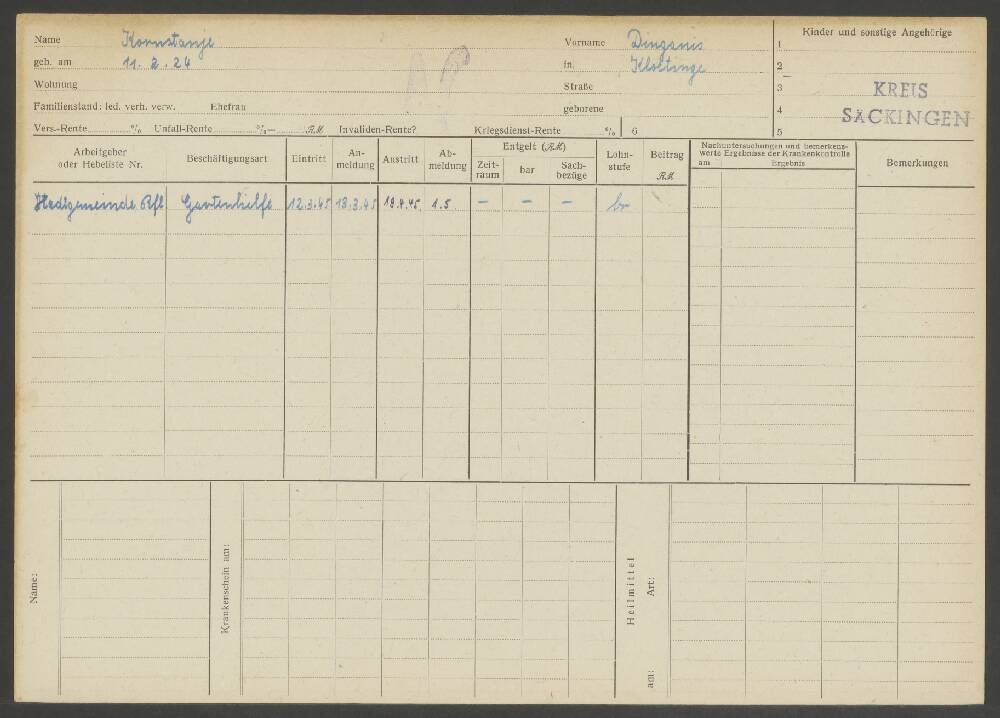 Name Kornstanje Vorname Dingenis Kinder und sonstige Angehörige
geb. am 11.2.24 in Kloetinge 1
Wohnung Straße 2
Familienstand: led. verh. verw. Ehefrau geborene 3
KREIS
SÄCKINGEN
4
Vers.-Rente % Unfall-Rente %— RM Invaliden-Rente? Kriegsdienst-Rente % 6 5
Arbeitgeber
oder Hebeliste Nr.
Beschäftigungsart
Eintritt
An-
meldung
Austritt
Ab-
meldung
Entgelt (RM)
Zeit-
raum
bar
Sach-
bezüge
Lohn-
stufe
Beitrag
RM
Nachuntersuchungen und bemerkens-
werte Ergebnisse der Krankenkontrolle
am Ergebnis
Bemerkungen
Stadtgemeinde Rfl Gartenhilfe 12.3.45 13.3.45 19.4.45 1.5 — — —
Name:
Krankenschein am:
Heilmittel
Art:
am: